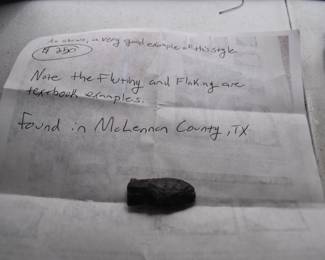 As above, a very good example of this style
$250
Note the Fluting and Flaking are
textbook examples.
Found in McLennan County, TX